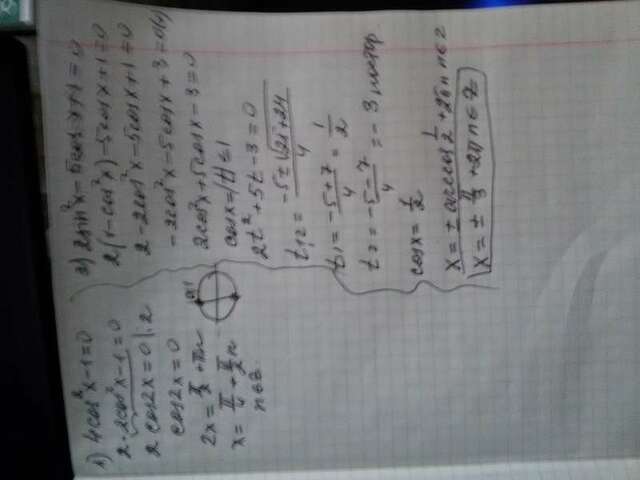 1) 4cos²x-1=0
2·2cos²x-1=0
2cos2x=0 |:2
cos2x=0
2x=π/2+πn
x=π/4+π/2 n
n∈z.
2) 2sin²x-5cosx+1=0
2(1-cos²x)-5cosx+1=0
2-2cos²x-5cosx+1=0
-2cos²x-5cosx+3=0
2cos²x+5cosx-3=0
cosx=|t|≤1
2t²+5t-3=0
t₁,₂=-5±√25+24/4
t₁=-5+7/4=1/2
t₂=-5-7/4=-3,
cosx=1/2
x=±arccos 1/2+2πn n∈z
x=±π/3+2πn n∈z